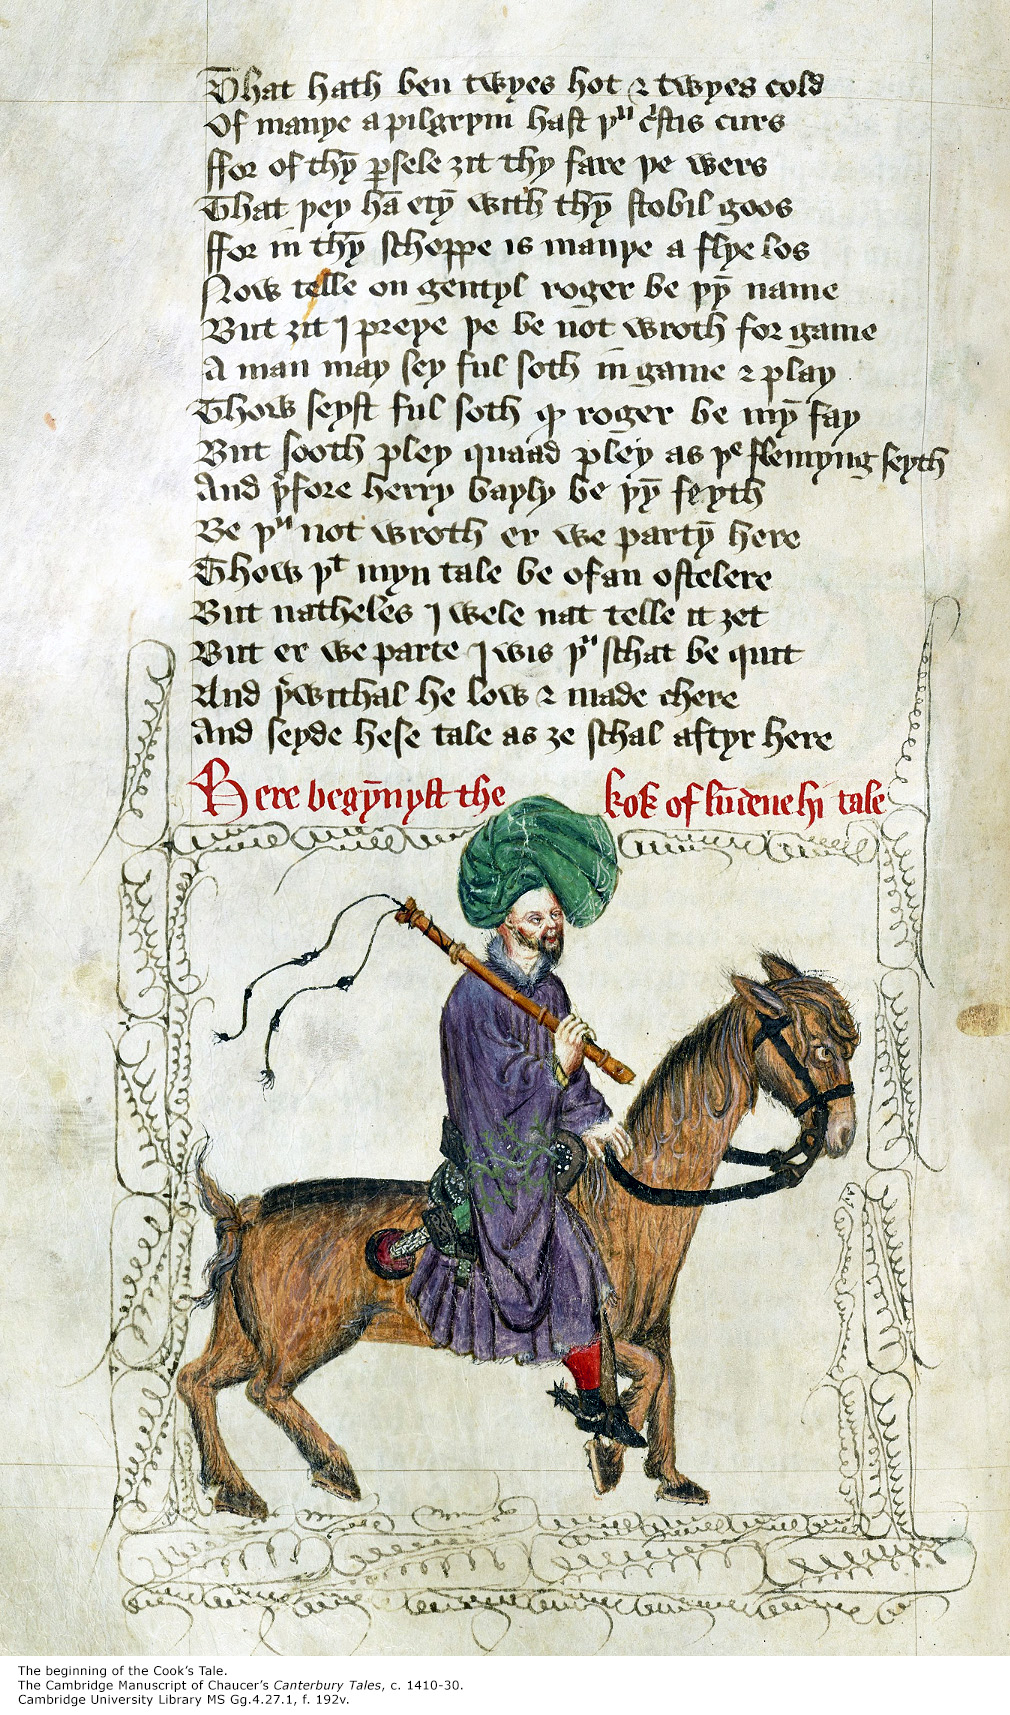 That hath ben twyes hot & twyes cold
Of manye a pilgrym hast þᵘ c̉stis curs
ffor of thȳ ꝑsele ȝit thy fare þe wers
That þey hā etȳ with thȳ stobil goos
ffor in thȳ schoppe is manye a flye los
Now telle on gentyl roger be þȳ name
But ȝit I preye þe be not wroth for game
A man may sey ful soth in game & play
Thow seyst ful soth qͦ roger be mȳ fay
But sooth pley quaad pley as þᵉ flemyng seyth
And þ̉fore herry bayly be þȳ feyth
Be þᵘ not wroth er we partȳ here
Thow þᵗ myn tale be of an ostelere
But natheles I wele nat telle it ȝet
But er we parte I wis þᵘ schat be quit
And þ̉withal he low & made chere
And seyde hese tale as ȝe schal aftyr here
Here begȳnyst the kok of lūdene hi tale
The beginning of the Cook’s Tale.
The Cambridge Manuscript of Chaucer’s Canterbury Tales, c. 1410-30.
Cambridge University Library MS Gg.4.27.1, f. 192v.